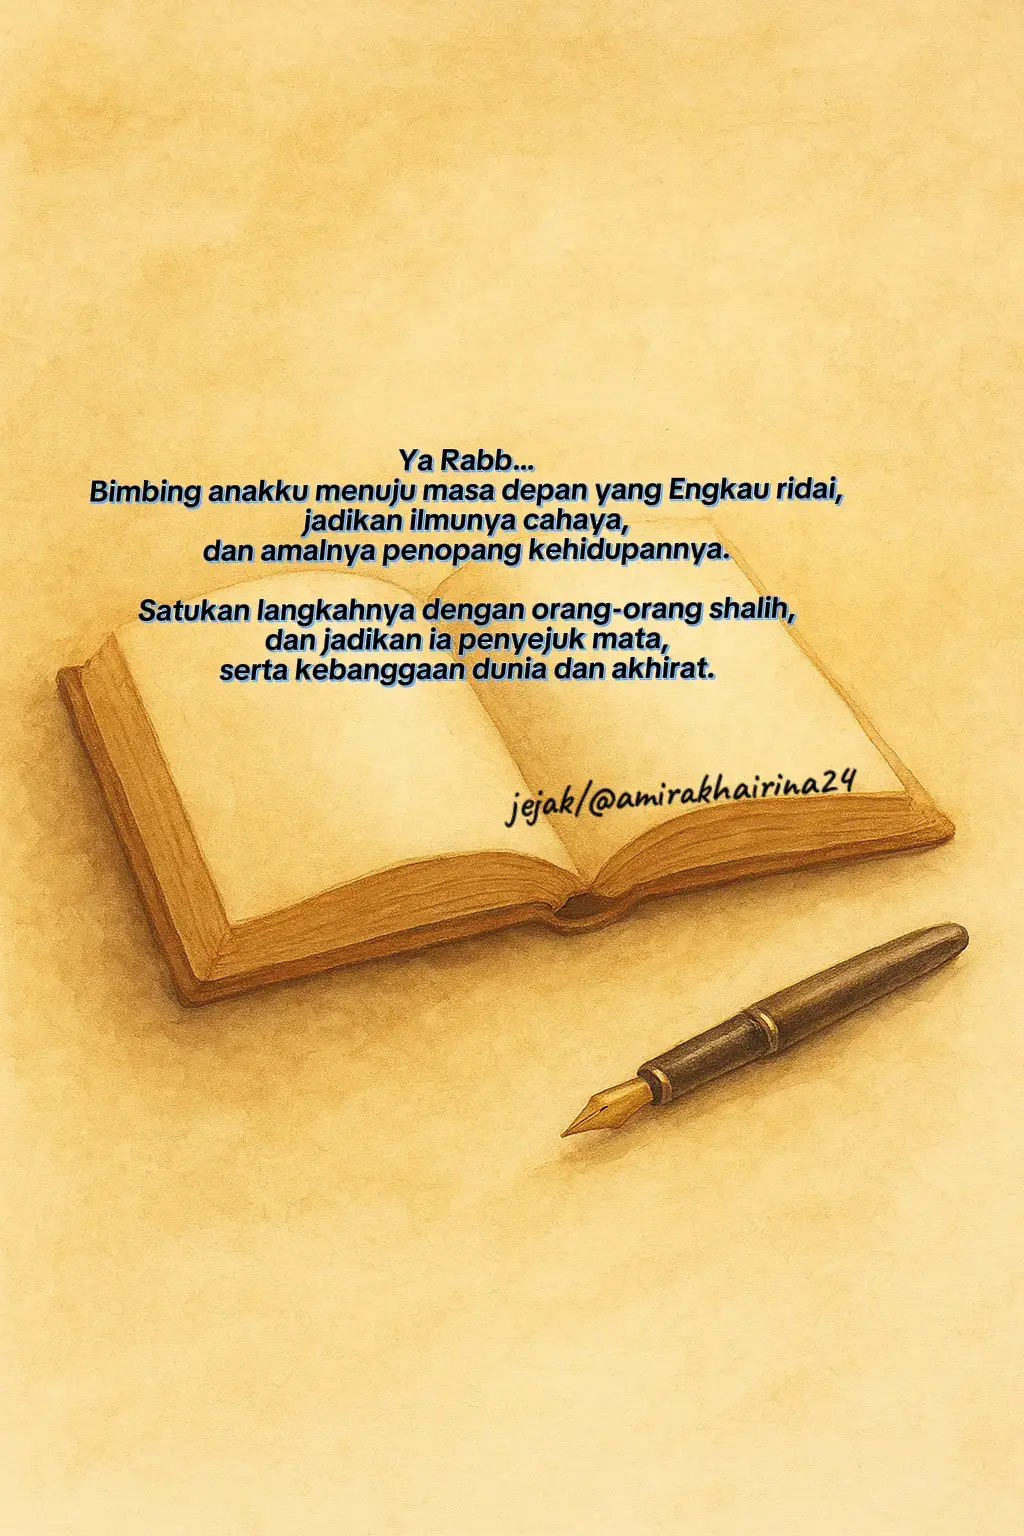 Ya Rabb...
Bimbing anakku menuju masa depan yang Engkau ridai,
jadikan ilmunya cahaya,
dan amalnya penopang kehidupannya.
Satukan langkahnya dengan orang-orang shalih,
dan jadikan ia penyejuk mata,
serta kebanggaan dunia dan akhirat.
jejak/@amirakhairina24